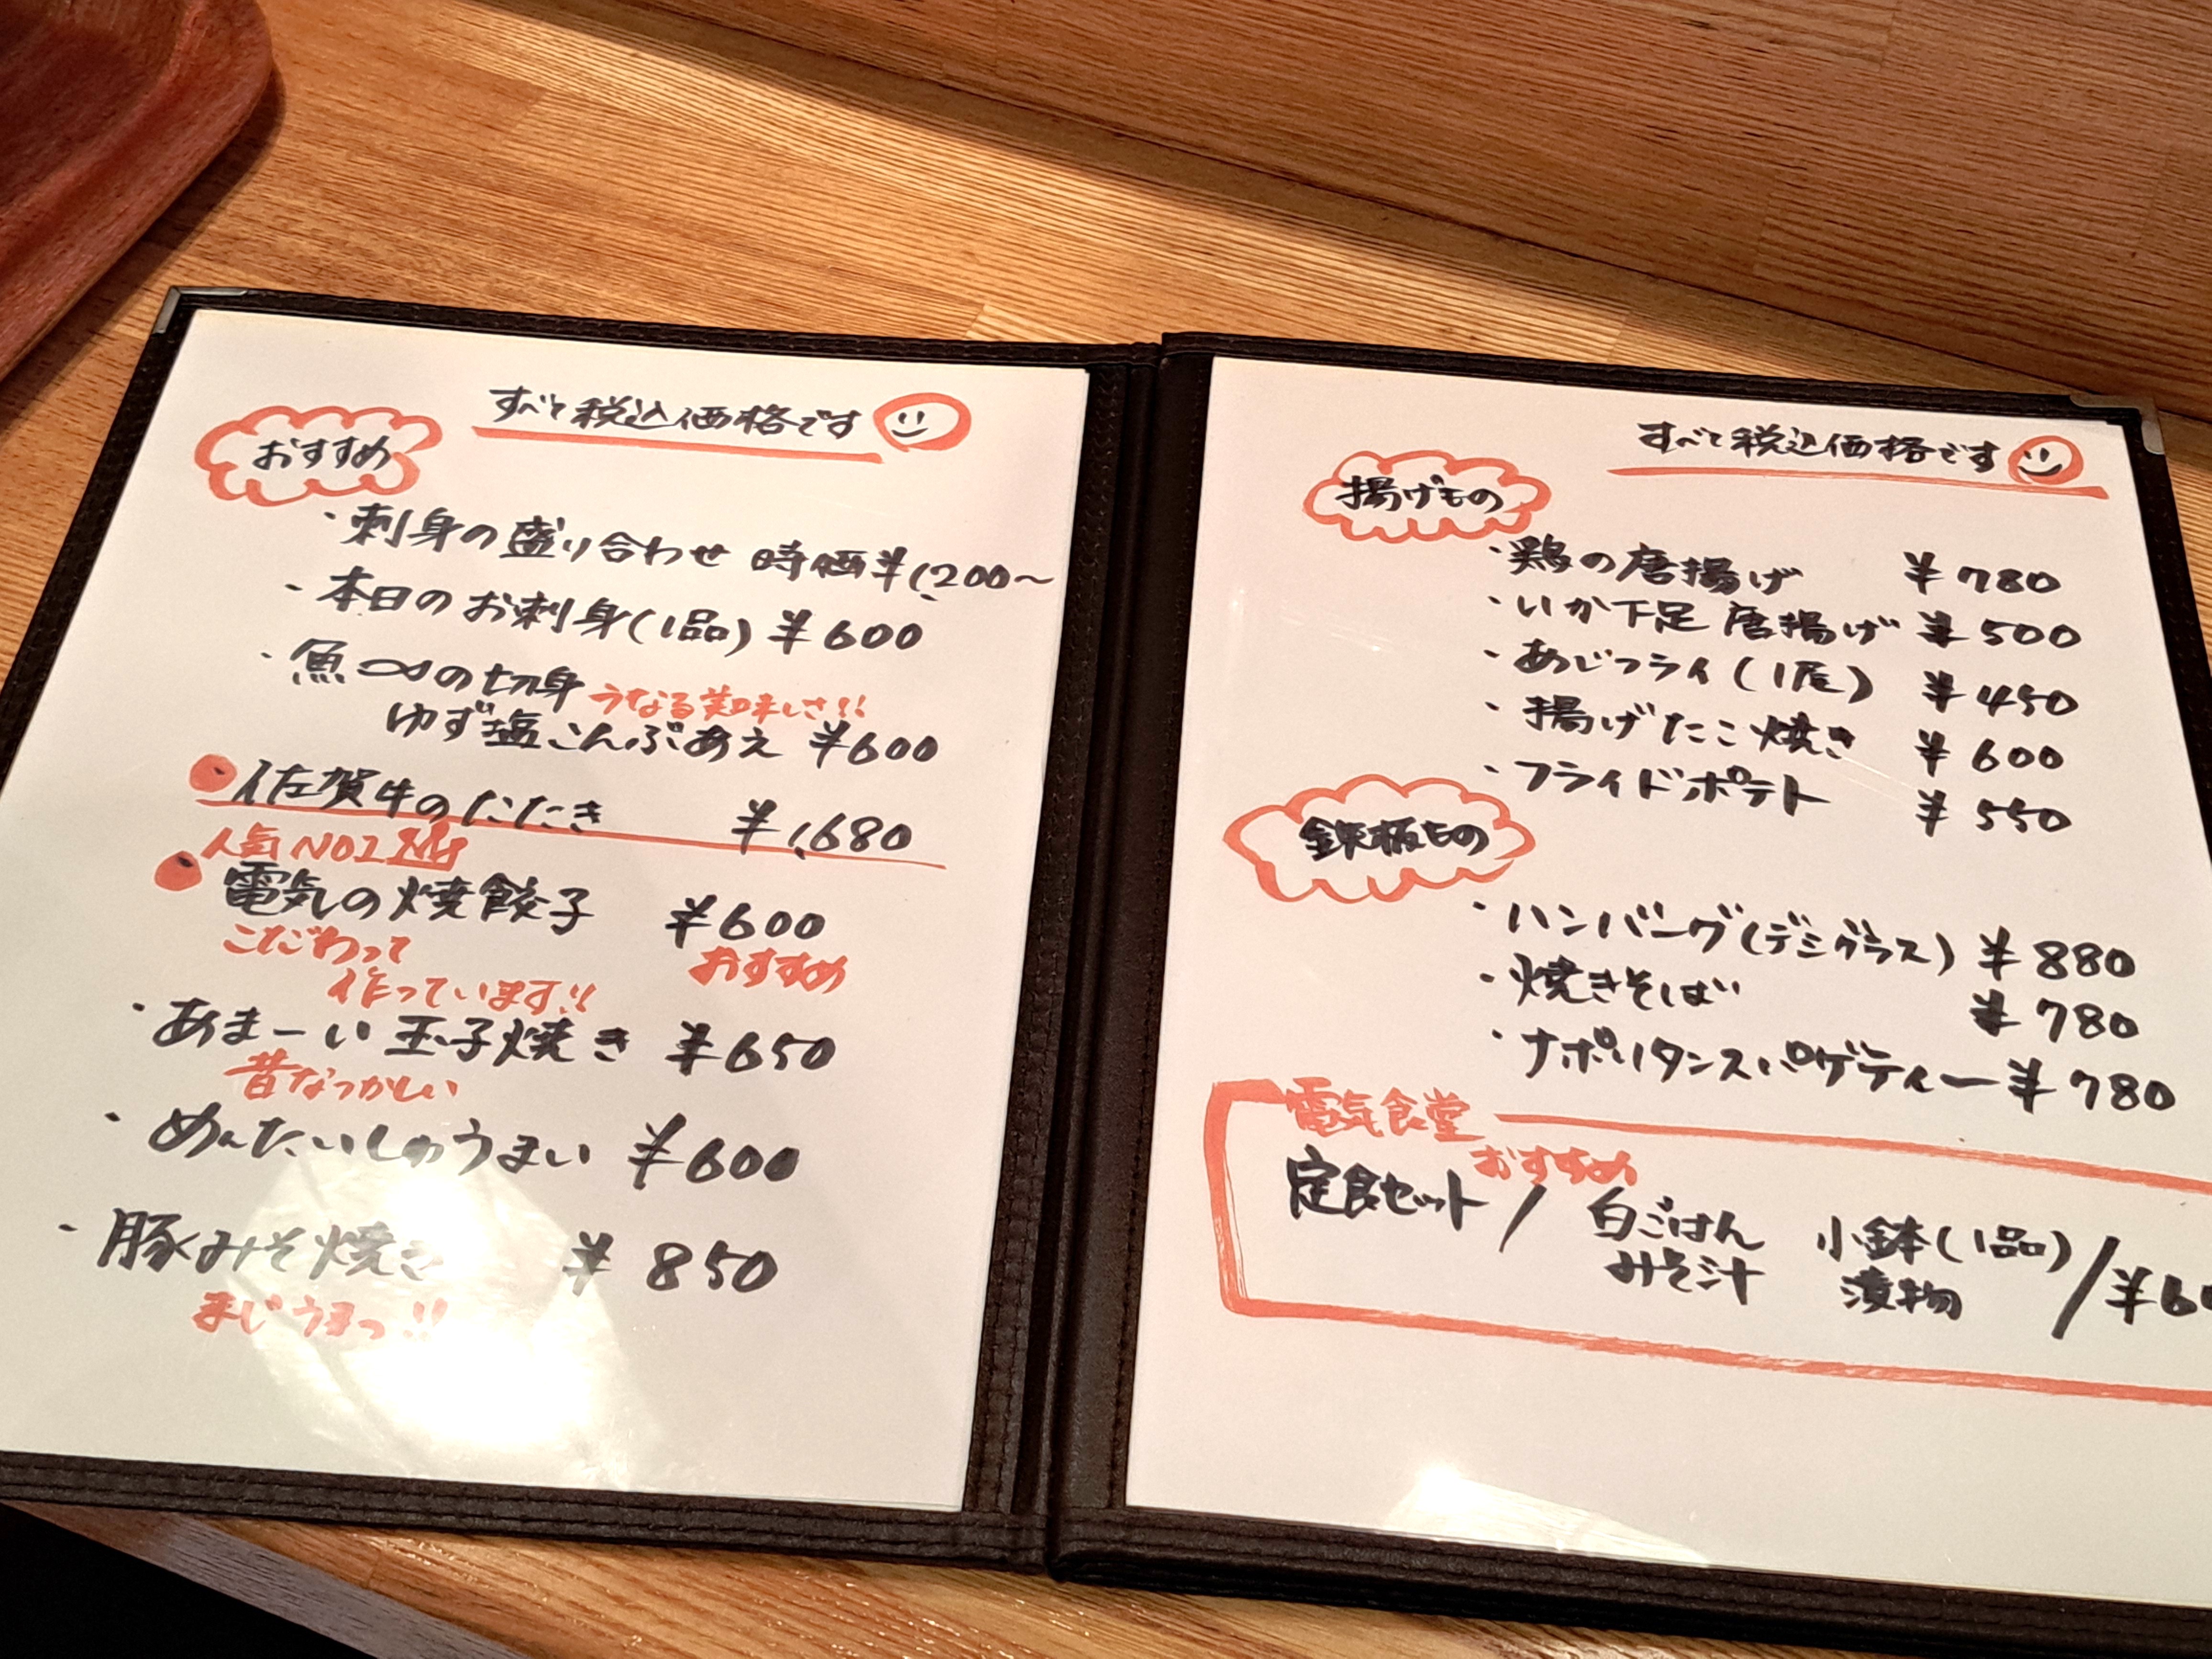 すべて税込価格です
おすすめ
・刺身の盛り合わせ 時価¥1,200〜
・本日のお刺身(1品) ¥600
・魚の切身 うなる美味しさ!!
ゆず塩こんぶあえ ¥600
佐賀牛のたたき ¥1,680
人気NO1
電気の焼餃子 ¥600
こだわって おすすめ
作っています!!
・あまーい玉子焼き ¥650
昔なつかしい
・めんたいしゅうまい ¥600
・豚みそ焼き ¥850
まじうまっ!!
すべて税込価格です
揚げもの
・鶏の唐揚げ ¥780
・いか下足唐揚げ ¥500
・あじフライ(1尾) ¥450
・揚げたこ焼き ¥600
・フライドポテト ¥550
鉄板もの
・ハンバーグ(デミグラス) ¥880
・焼きそば ¥780
・ナポリタンスパゲティー ¥780
電気食堂
おすすめ
定食セット / 白ごはん 小鉢(1品) /
みそ汁 漬物